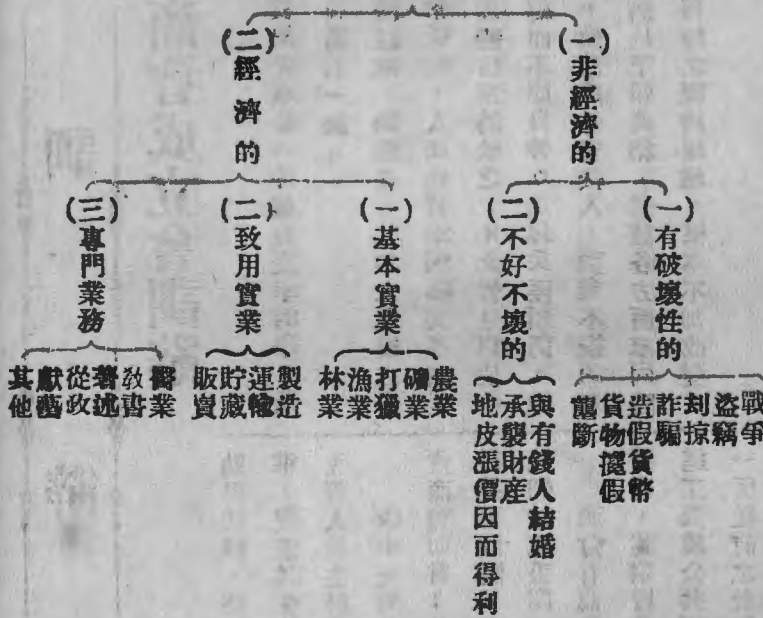 (一)非經濟的
(一)有破壞性的
戰爭
盜竊
刦掠
詐騙
造假貨幣
貨物攙假
壟斷
(二)不好不壞的
與有錢人結婚
承襲財産
地皮漲價因而得利
(二)經濟的
(一)基本實業
農業
礦業
打獵
漁業
林業
(二)致用實業
製造
運輸
貯藏
販賣
(三)專門業務
醫業
敎書
著述
從政
獻藝
其他